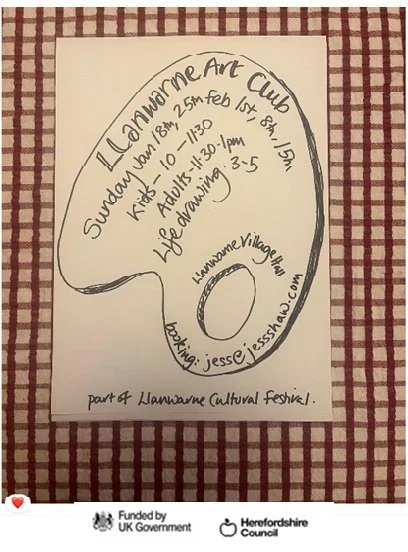 Llanwarne Art Club
Sunday Jan 18th, 25th Feb 1st, 8th, 15th
Kids - 10 - 11:30
Adults - 11:30 - 1pm
Life drawing 3-5
Llanwarne Village Hall
booking: jess@jessshaw.com
part of Llanwarne Cultural Festival.
Funded by
UK Government
Herefordshire
Council